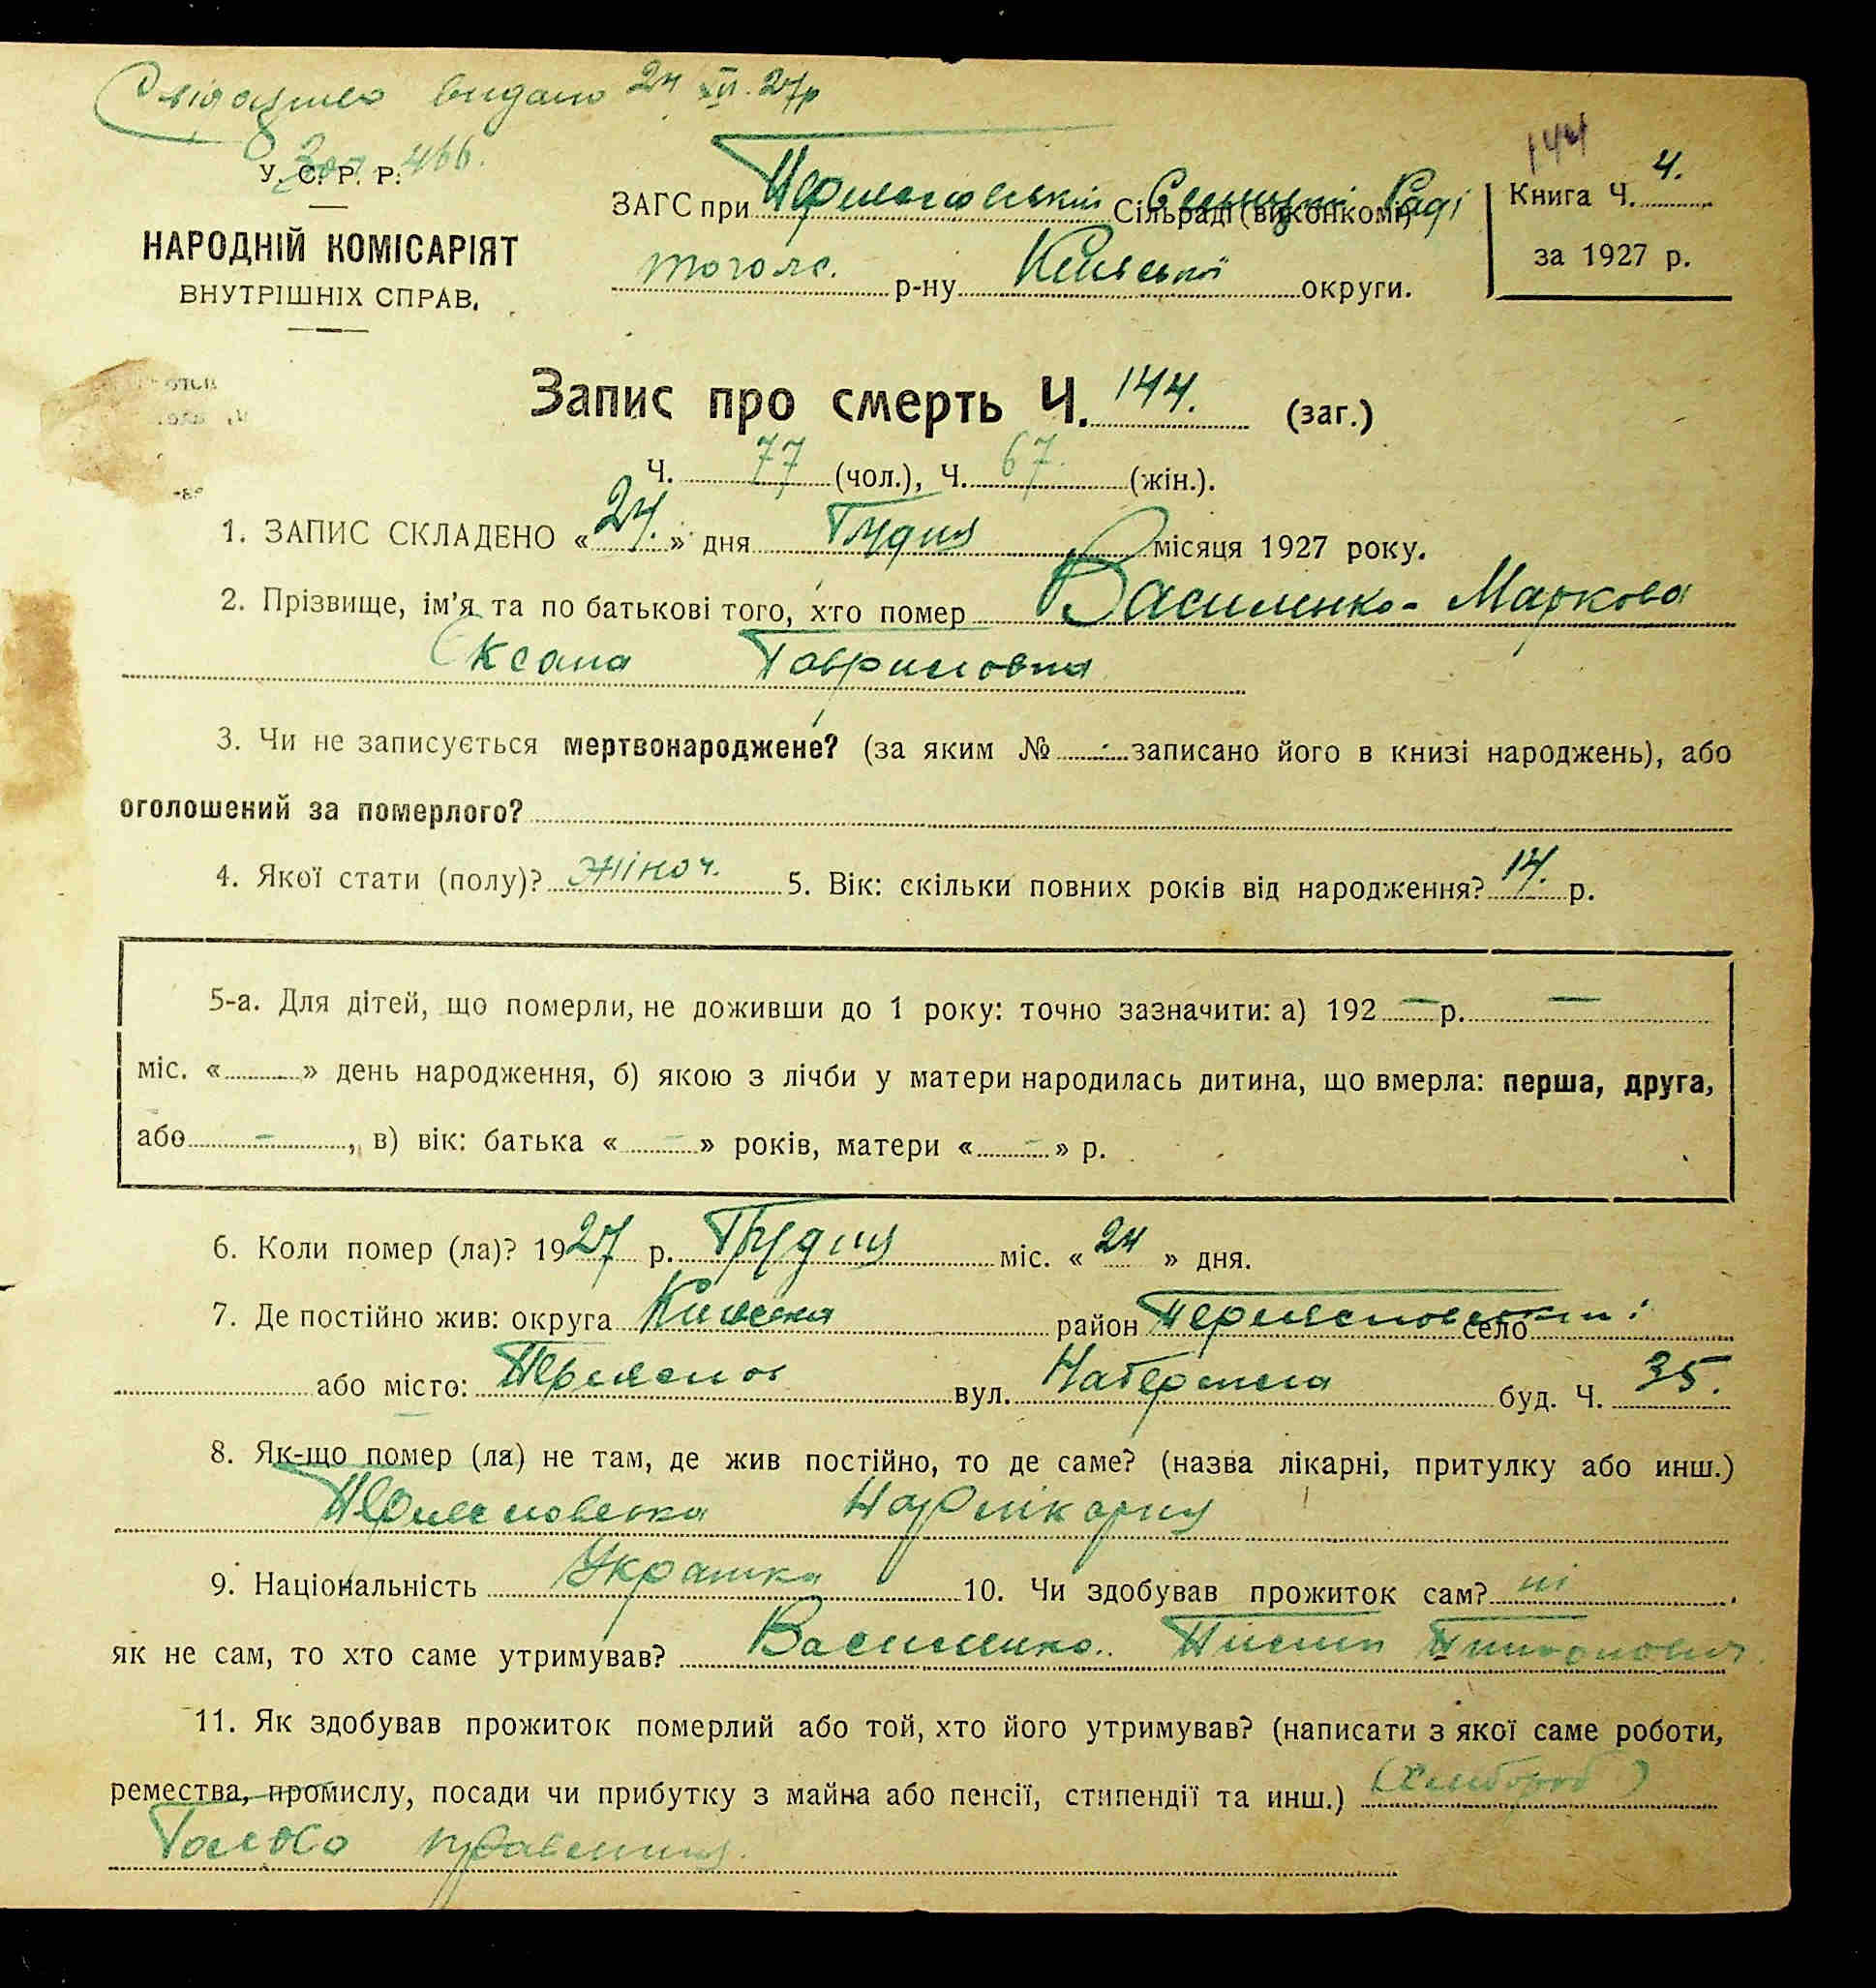 Свідоцтво видано 24 XII. 27р
Зап. 466.
У. С. Р. Р.
НАРОДНІЙ КОМІСАРІЯТ
ВНУТРІШНІХ СПРАВ.
144
ЗАГС при Сільраді (виконкомі) Раді
тогож. р-ну Київської округи.
Книга Ч. 4.
за 1927 р.
Запис про смерть Ч. 144. (заг.)
Ч. 77 (чол.), Ч. 67. (жін.).
1. ЗАПИС СКЛАДЕНО «24.» дня Грудня місяця 1927 року.
2. Прізвище, ім'я та по батькові того, хто помер Василенко-Маркова
Оксана Гавриловна
3. Чи не записується мертвонароджене? (за яким № записано його в книзі народжень), або
оголошений за померлого?
4. Якої стати (полу)? жіноч. 5. Вік: скільки повних років від народження? 14. р.
5-а. Для дітей, що померли, не доживши до 1 року: точно зазначити: а) 192 — р. —
міс. « » день народження, б) якою з лічби у матери народилась дитина, що вмерла: перша, друга,
або - , в) вік: батька « - » років, матери « - » р.
6. Коли помер (ла)? 1927 р. Грудня міс. «24» дня.
7. Де постійно жив: округа Київська район село
або місто: вул. Набережна буд. Ч. 35.
8. Як-що помер (ла) не там, де жив постійно, то де саме? (назва лікарні, притулку або инш.)
Нарлікарня
9. Національність Українка 10. Чи здобував прожиток сам? ні
як не сам, то хто саме утримував? Василенко
11. Як здобував прожиток померлий або той, хто його утримував? (написати з якої саме роботи,
ремества, промислу, посади чи прибутку з майна або пенсії, стипендії та инш.) (Хлібороб)